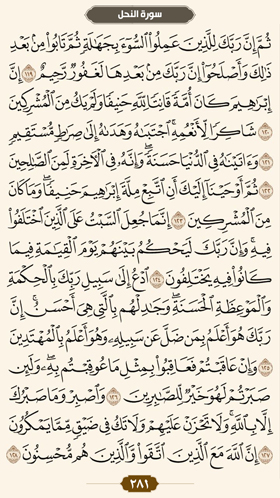 سورة النحل
ثُمَّ إِنَّ رَبَّكَ لِلَّذِينَ عَمِلُوا۟ ٱلسُّوٓءَ بِجَهَٰلَةٍ ثُمَّ تَابُوا۟ مِنۢ بَعْدِ
ذَٰلِكَ وَأَصْلَحُوٓا۟ إِنَّ رَبَّكَ مِنۢ بَعْدِهَا لَغَفُورٌ رَّحِيمٌ ١١٩ إِنَّ
إِبْرَٰهِيمَ كَانَ أُمَّةً قَانِتًا لِّلَّهِ حَنِيفًا وَلَمْ يَكُ مِنَ ٱلْمُشْرِكِينَ
١٢٠ شَاكِرًا لِّأَنْعُمِهِ ۚ ٱجْتَبَىٰهُ وَهَدَىٰهُ إِلَىٰ صِرَٰطٍ مُّسْتَقِيمٍ
١٢١ وَءَاتَيْنَٰهُ فِى ٱلدُّنْيَا حَسَنَةً ۖ وَإِنَّهُۥ فِى ٱلْءَاخِرَةِ لَمِنَ ٱلصَّٰلِحِينَ
١٢٢ ثُمَّ أَوْحَيْنَآ إِلَيْكَ أَنِ ٱتَّبِعْ مِلَّةَ إِبْرَٰهِيمَ حَنِيفًا ۖ وَمَا كَانَ
مِنَ ٱلْمُشْرِكِينَ ١٢٣ إِنَّمَا جُعِلَ ٱلسَّبْتُ عَلَى ٱلَّذِينَ ٱخْتَلَفُوا۟
فِيهِ ۚ وَإِنَّ رَبَّكَ لَيَحْكُمُ بَيْنَهُمْ يَوْمَ ٱلْقِيَٰمَةِ فِيمَا
كَانُوا۟ فِيهِ يَخْتَلِفُونَ ١٢٤ ٱدْعُ إِلَىٰ سَبِيلِ رَبِّكَ بِٱلْحِكْمَةِ
وَٱلْمَوْعِظَةِ ٱلْحَسَنَةِ ۖ وَجَٰدِلْهُم بِٱلَّتِى هِىَ أَحْسَنُ ۚ إِنَّ
رَبَّكَ هُوَ أَعْلَمُ بِمَن ضَلَّ عَن سَبِيلِهِۦ ۖ وَهُوَ أَعْلَمُ بِٱلْمُهْتَدِينَ
١٢٥ وَإِنْ عَاقَبْتُمْ فَعَاقِبُوا۟ بِمِثْلِ مَا عُوقِبْتُم بِهِۦ ۖ وَلَئِن
صَبَرْتُمْ لَهُوَ خَيْرٌ لِّلصَّٰبِرِينَ ١٢٦ وَٱصْبِرْ وَمَا صَبْرُكَ
إِلَّا بِٱللَّهِ ۚ وَلَا تَحْزَنْ عَلَيْهِمْ وَلَا تَكُ فِى ضَيْقٍ مِّمَّا يَمْكُرُونَ
١٢٧ إِنَّ ٱللَّهَ مَعَ ٱلَّذِينَ ٱتَّقَوا۟ وَّٱلَّذِينَ هُم مُّحْسِنُونَ ١٢٨
٢٨١